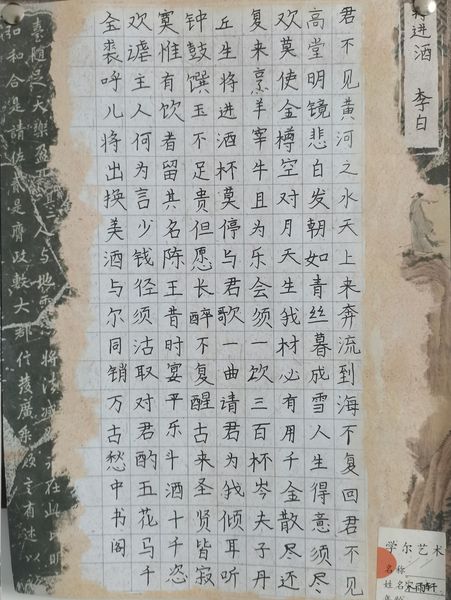 将进酒 李白
君不见黄河之水天上来奔流到海不复回君不见
高堂明镜悲白发朝如青丝暮成雪人生得意须尽
欢莫使金樽空对月天生我材必有用千金散尽还
复来烹羊宰牛且为乐会须一饮三百杯岑夫子丹
丘生将进酒杯莫停与君歌一曲请君为我倾耳听
钟鼓馔玉不足贵但愿长醉不复醒古来圣贤皆寂
寞惟有饮者留其名陈王昔时宴平乐斗酒十千恣
欢谑主人何为言少钱径须沽取对君酌五花马千
金裘呼儿将出换美酒与尔同销万古愁中书阁
学尔艺术
名称
姓名 宋雨轩